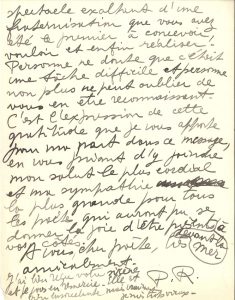 spectacle exaltant d'une
fraternisation que vous avez
été le premier à concevoir
vouloir et enfin réaliser.
Personne ne doute que c'était
une tâche difficile et personne
non plus ne peut oublier de
vous en être reconnaissant.
C'est l'expression de cette
gratitude que je vous apporte
pour ma part dans ce message,
en vous priant d'y joindre
mon salut le plus cordial
et ma sympathie
la plus grande pour tous
les poètes qui auront pu se
donner la joie d'être présents
à vos côtés. devant la
mer
A vous cher poète, très
amicalement.
P. R.
J'ai bien reçu votre
et je vous en remercie. elle